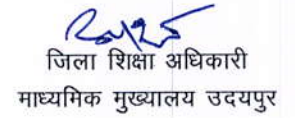 जिला शिक्षा अधिकारी
माध्यमिक मुख्यालय उदयपुर